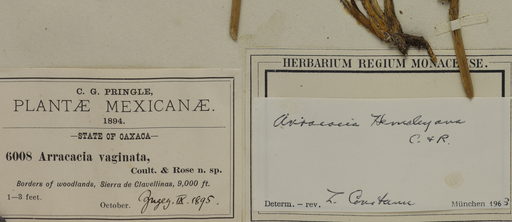 C. G. PRINGLE,
PLANTÆ MEXICANÆ.
1894.
—STATE OF OAXACA—
6008 Arracacia vaginata,
Coult. & Rose n. sp.
Borders of woodlands, Sierra de Clavellinas, 9,000 ft.
1—3 feet.
October.
IX. 1895.
HERBARIUM REGIUM MONACENSE.
Arracacia Hemsleyana
C. & R.
Determ. – rev. L. Constance
München 1963